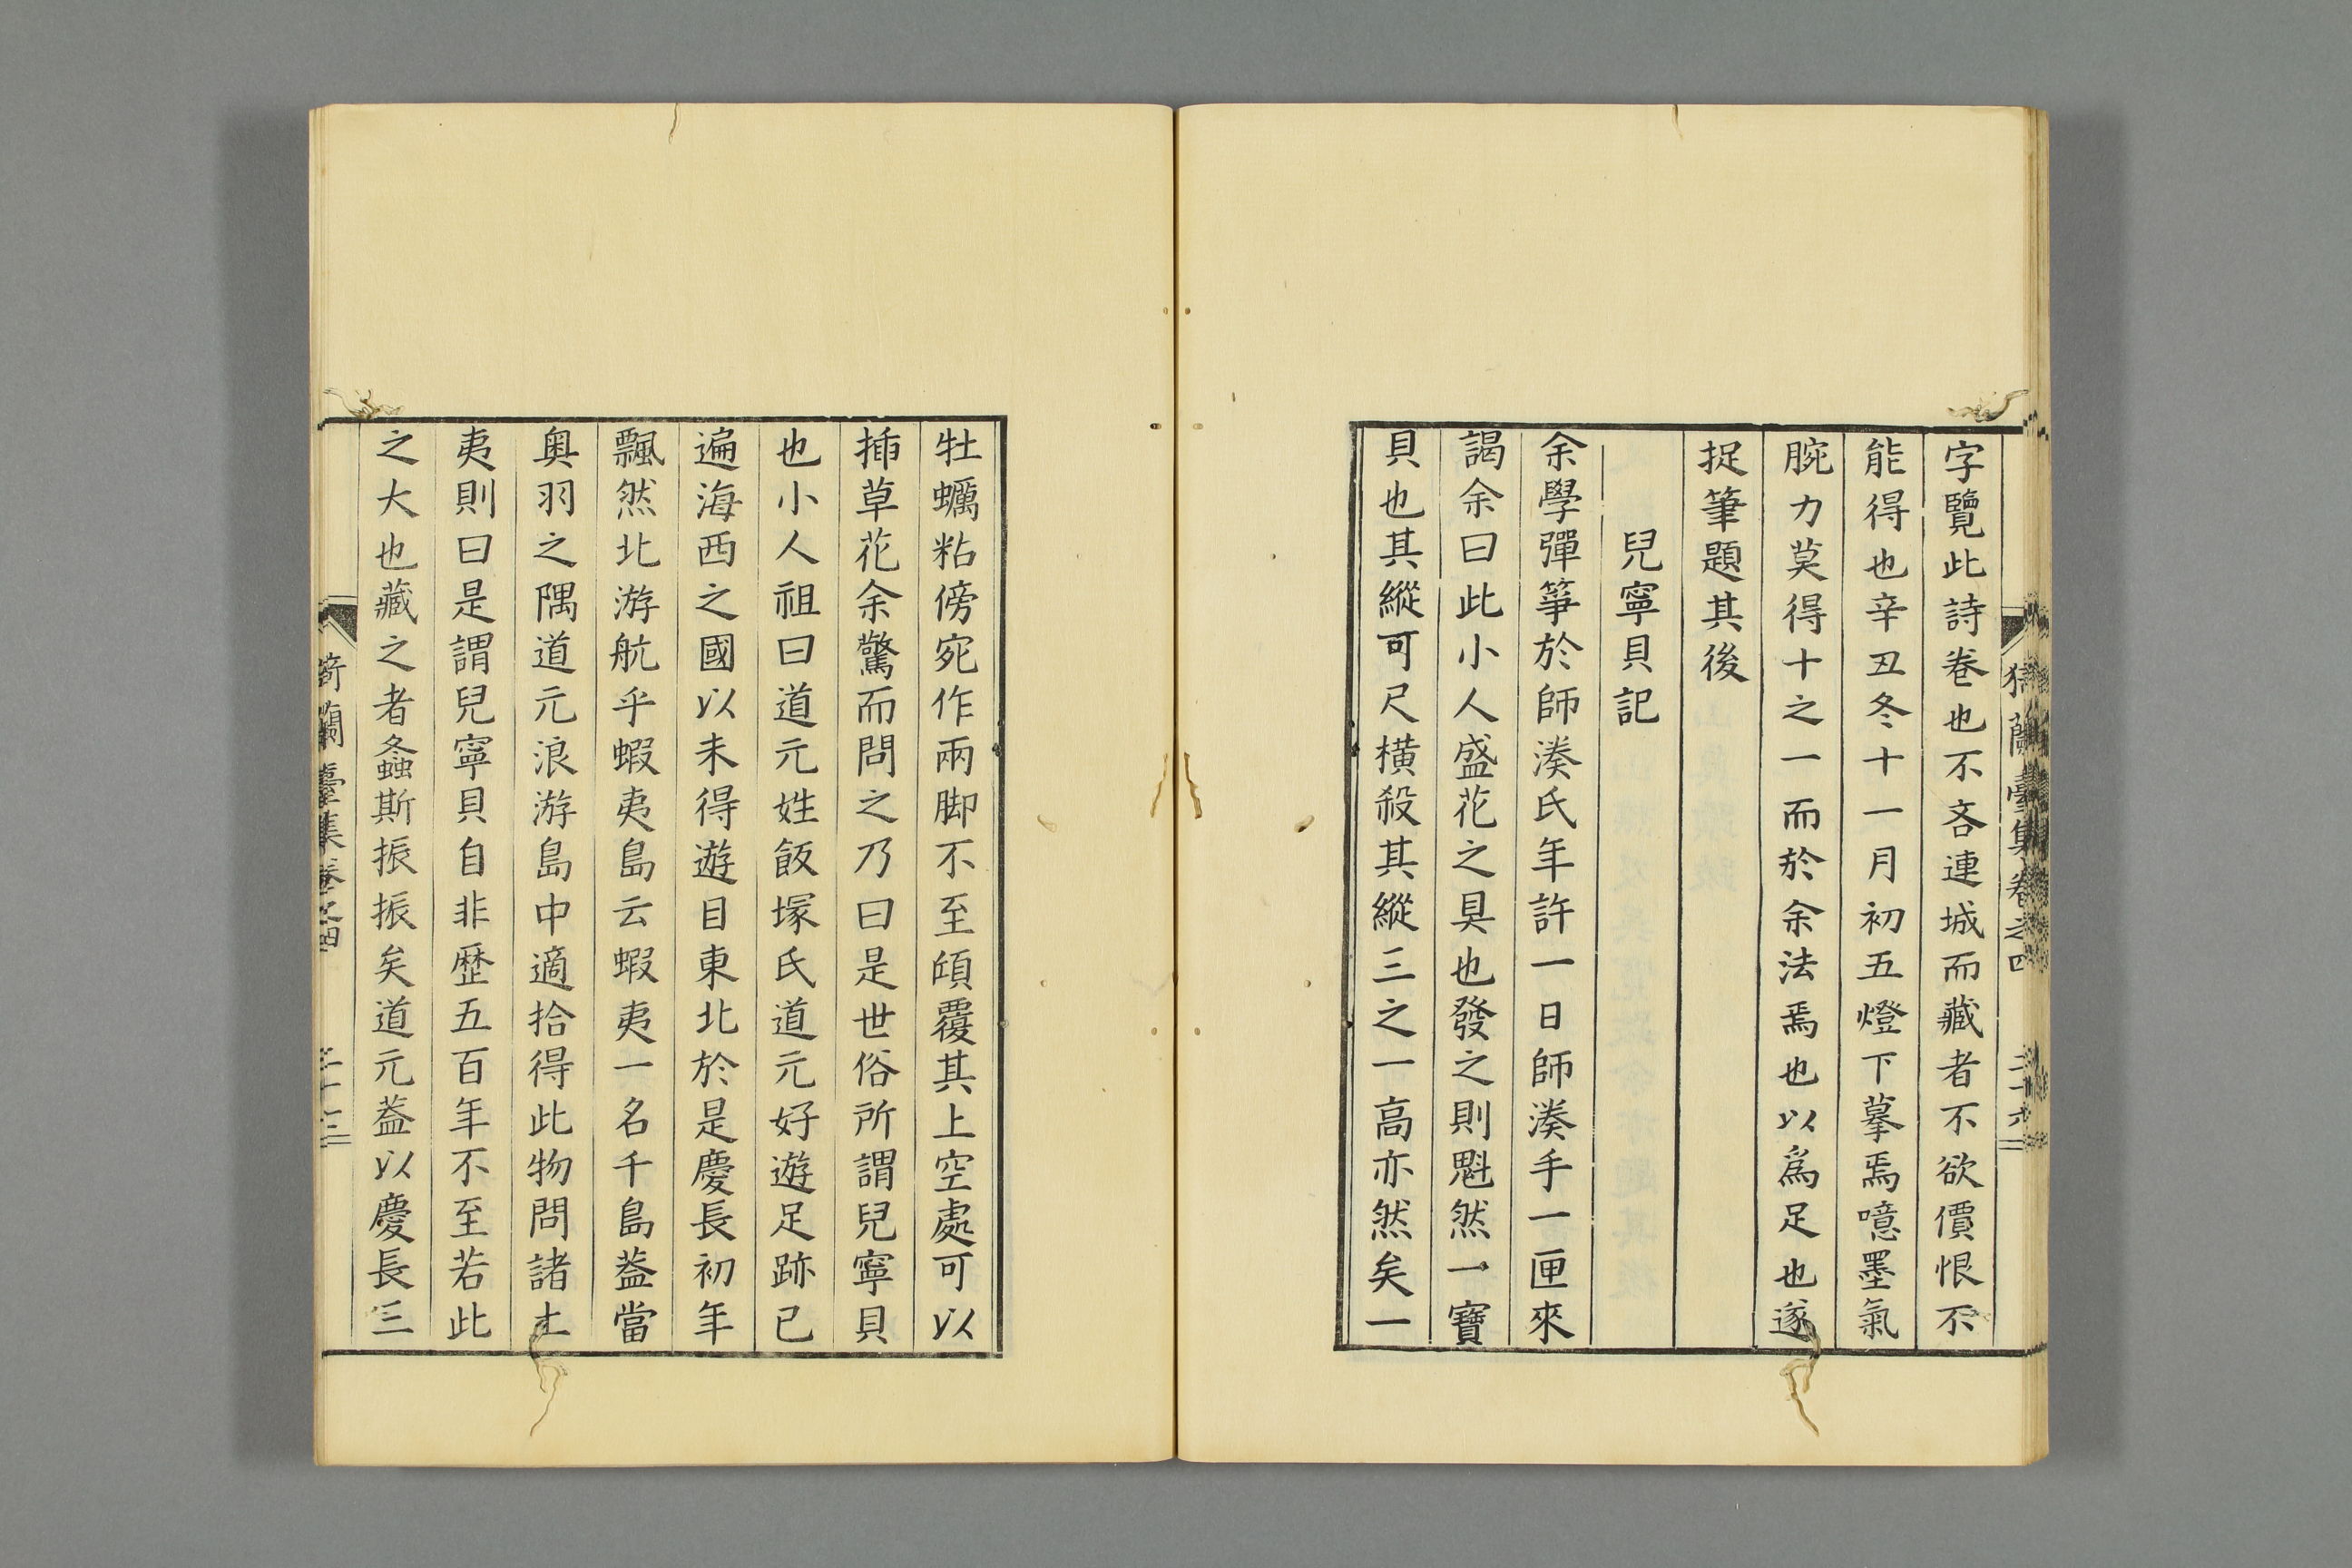 字覽此詩卷也不吝連城而藏者不欲價恨不
能得也辛丑冬十一月初五燈下摹焉噫墨氣
腕力莫得十之一而於余法焉也以爲足也遂
捉筆題其後
兒寧貝記
余學彈箏於師湊氏年許一日師湊手一匣來
謁余曰此小人盛花之具也發之則魁然一寶
貝也其縱可尺橫殺其縱三之一高亦然矣一
牡蠣粘傍宛作兩脚不至頎覆其上空處可以
插草花余驚而問之乃曰是世俗所謂兒寧貝
也小人祖曰道元姓飯塚氏道元好遊足跡已
遍海西之國以未得遊目東北於是慶長初年
飄然北游航乎蝦夷島云蝦夷一名千島葢當
奥羽之隅道元浪游島中適拾得此物問諸土
夷則曰是謂兒寧貝自非歷五百年不至若此
之大也藏之者螽斯振振矣道元葢以慶長三
猗蘭臺集卷之四